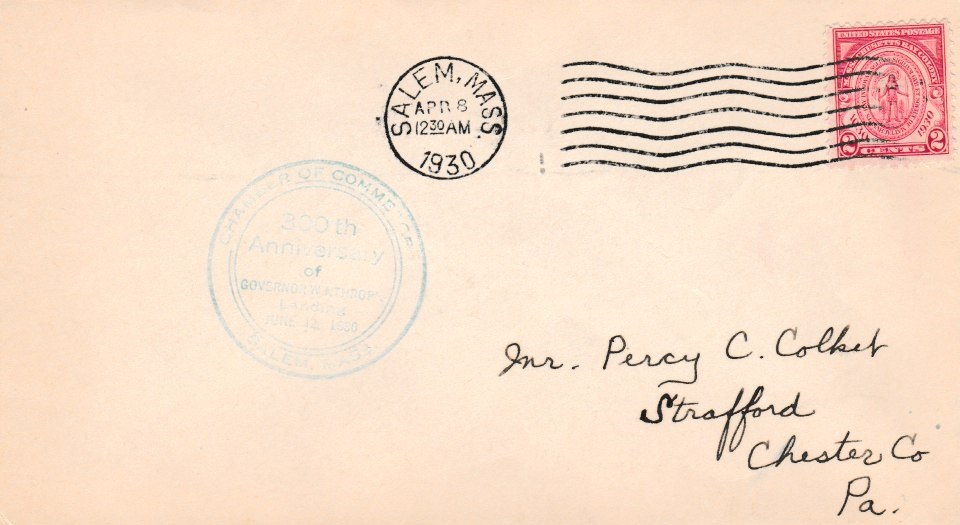 SALEM, MASS.
APR 8
12 30 AM
1930
UNITED STATES POSTAGE
MASSACHUSETTS BAY COLONY
1930
2 CENTS 2
CHAMBER OF COMMERCE
300th
Anniversary
of
GOVERNOR WINTHROP'S
LANDING
JUNE 12, 1930
SALEM, MASS.
Mr. Percy C. Colket
Strafford
Chester Co
Pa.